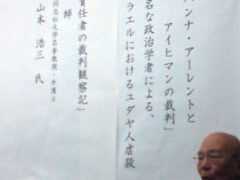 ンナ・アーレントと
アイヒマンの裁判」
名な政治学者による、
ラエルにおけるユダヤ人虐殺
責任者の裁判観察記」
師
同志社大学名誉教授・弁護士
山本 浩三 氏